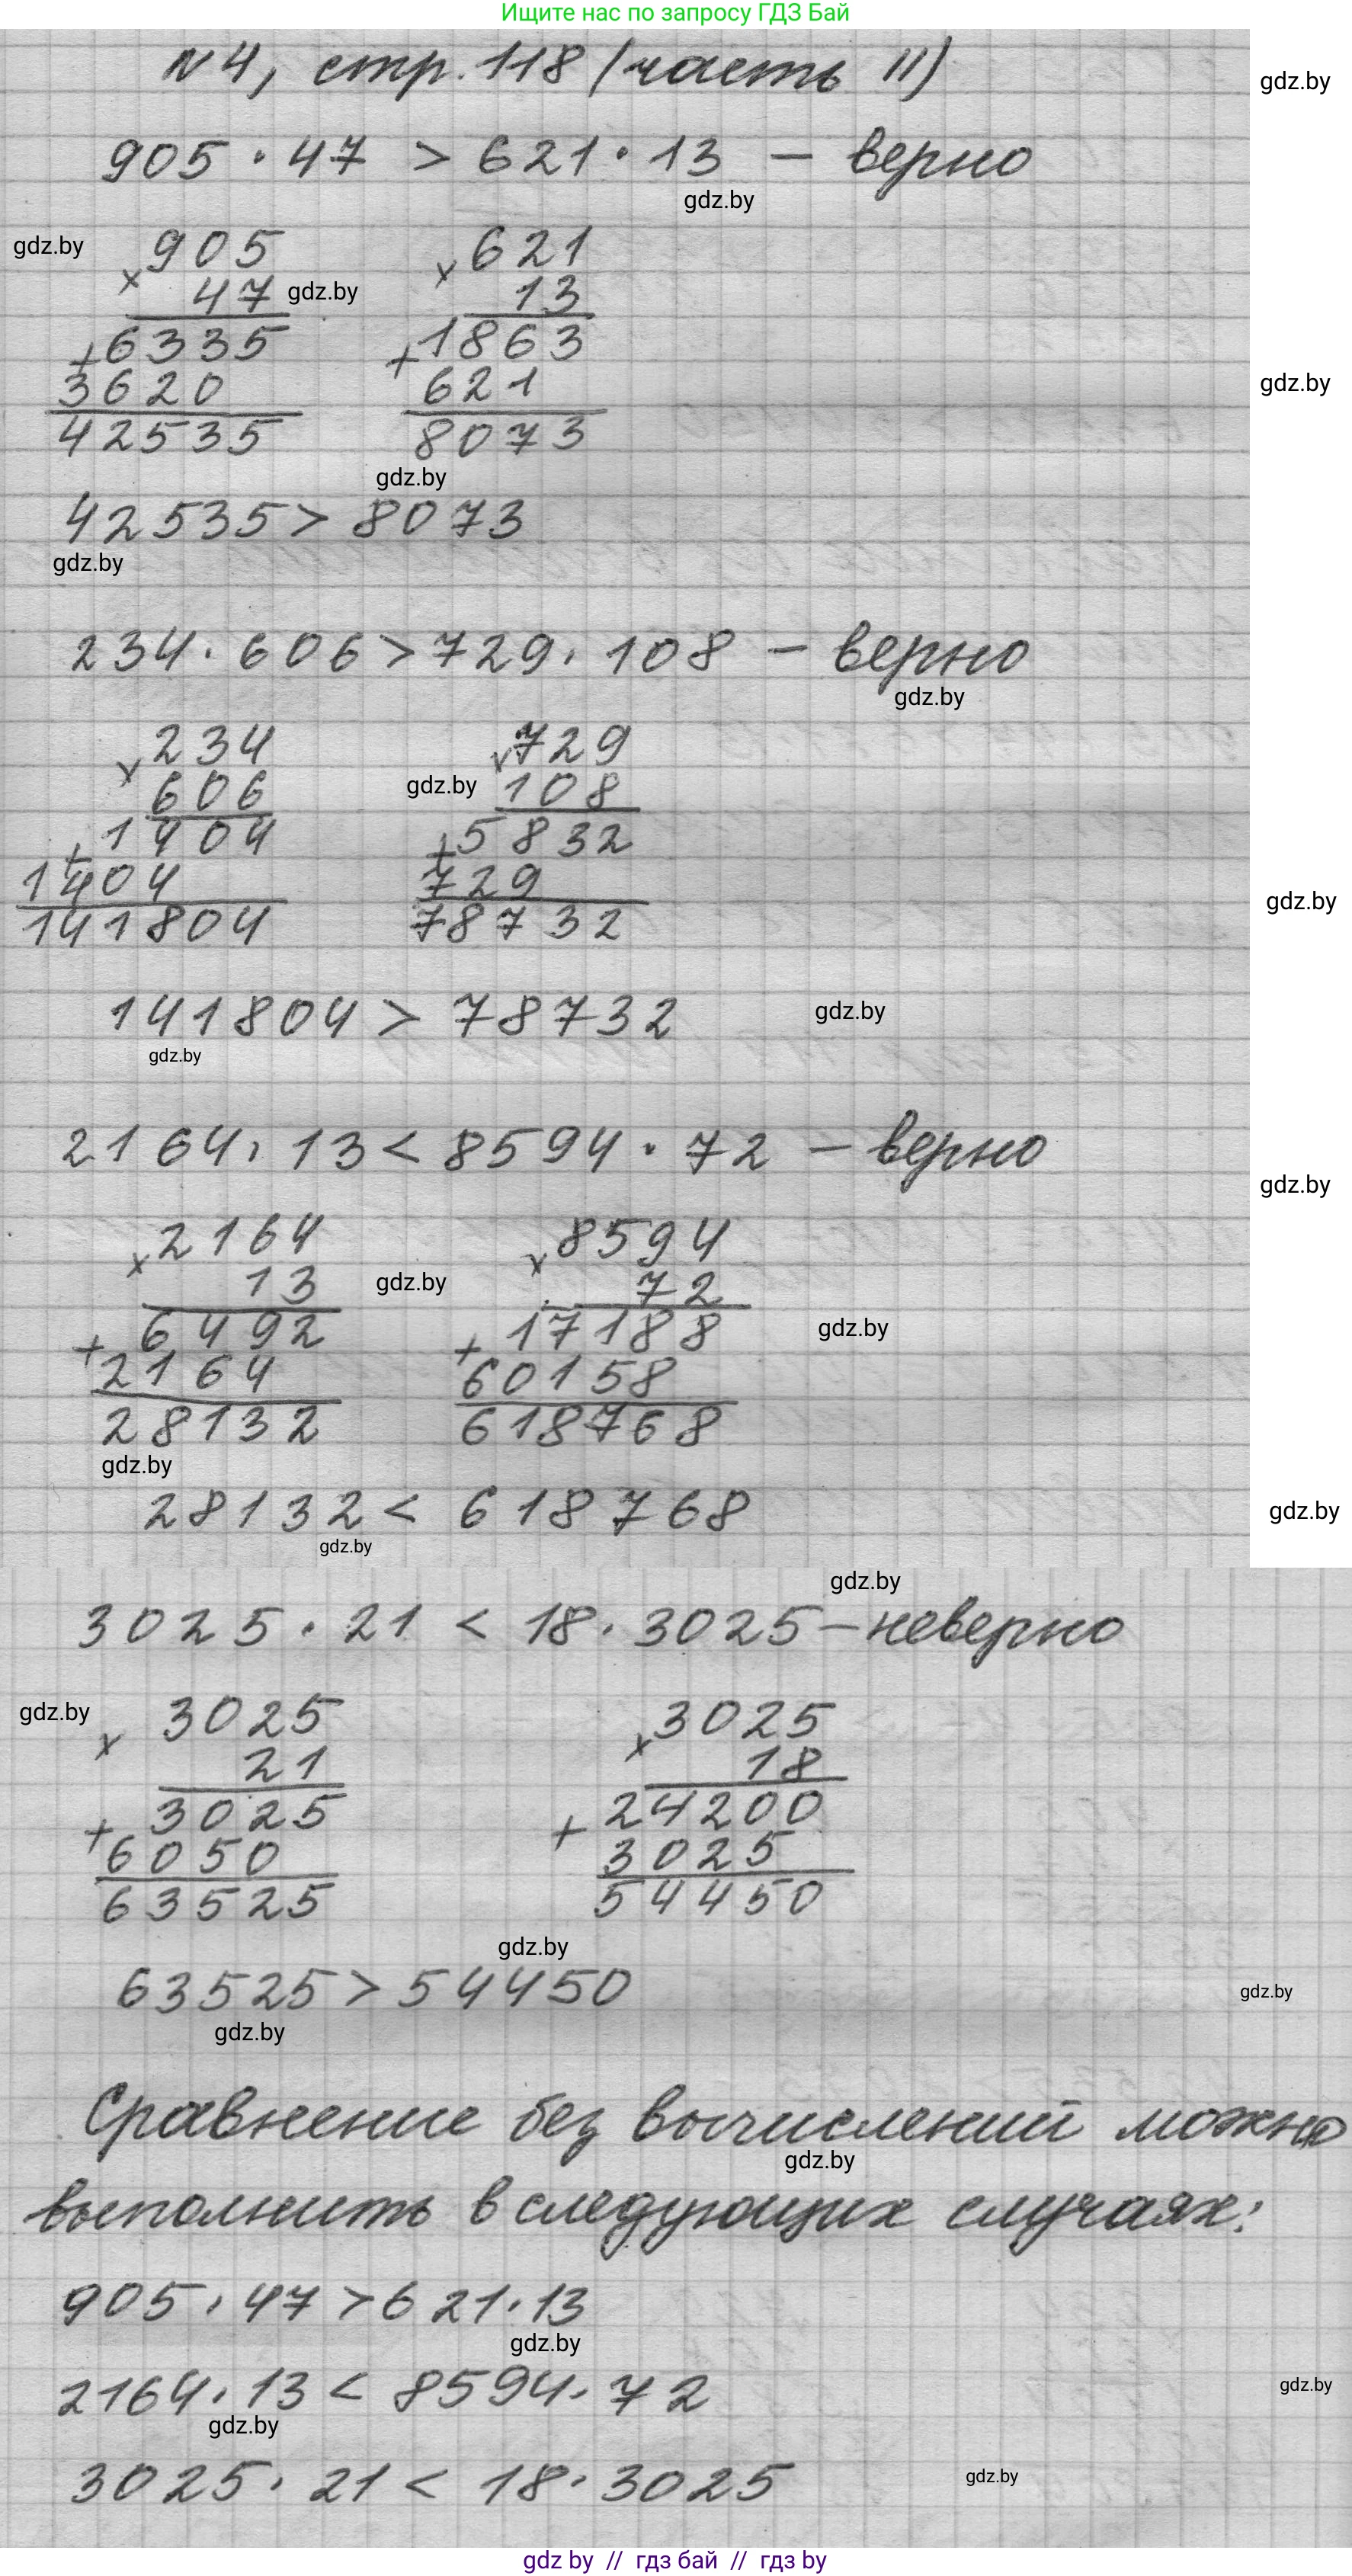 Ищите нас по запросу ГДЗ Бай
N4, стр. 118 (часть II)
gdz.by
905 · 47 > 621 · 13 – верно
gdz.by
gdz.by
905 621
× ×
47 gdz.by 13
6335 1863
+ +
3620 621
gdz.by
42535 8073
gdz.by
42535 > 8073
gdz.by
234 · 606 > 729 · 108 – верно
gdz.by
234 729
× ×
606 gdz.by 108
1404 5832
+ +
1404 729
gdz.by
141804 78732
141804 > 78732 gdz.by
gdz.by
2164 · 13 < 8594 · 72 – верно
gdz.by
2164 8594
× ×
13 gdz.by 72
6492 17188 gdz.by
+ +
2164 60158
28132 618768
gdz.by
28132 < 618768 gdz.by
gdz.by
gdz.by
3025 · 21 < 18 · 3025 – неверно
gdz.by 3025 3025
× ×
21 18
3025 24200
+ +
6050 3025
63525 54450
gdz.by
63525 > 54450 gdz.by
gdz.by
Сравнение без вычислений можно
gdz.by
выполнить в следующих случаях:
905 · 47 > 621 · 13
gdz.by
2164 · 13 < 8594 · 72 gdz.by
gdz.by
3025 · 21 < 18 · 3025 gdz.by
gdz by // гдз бай // гдз by